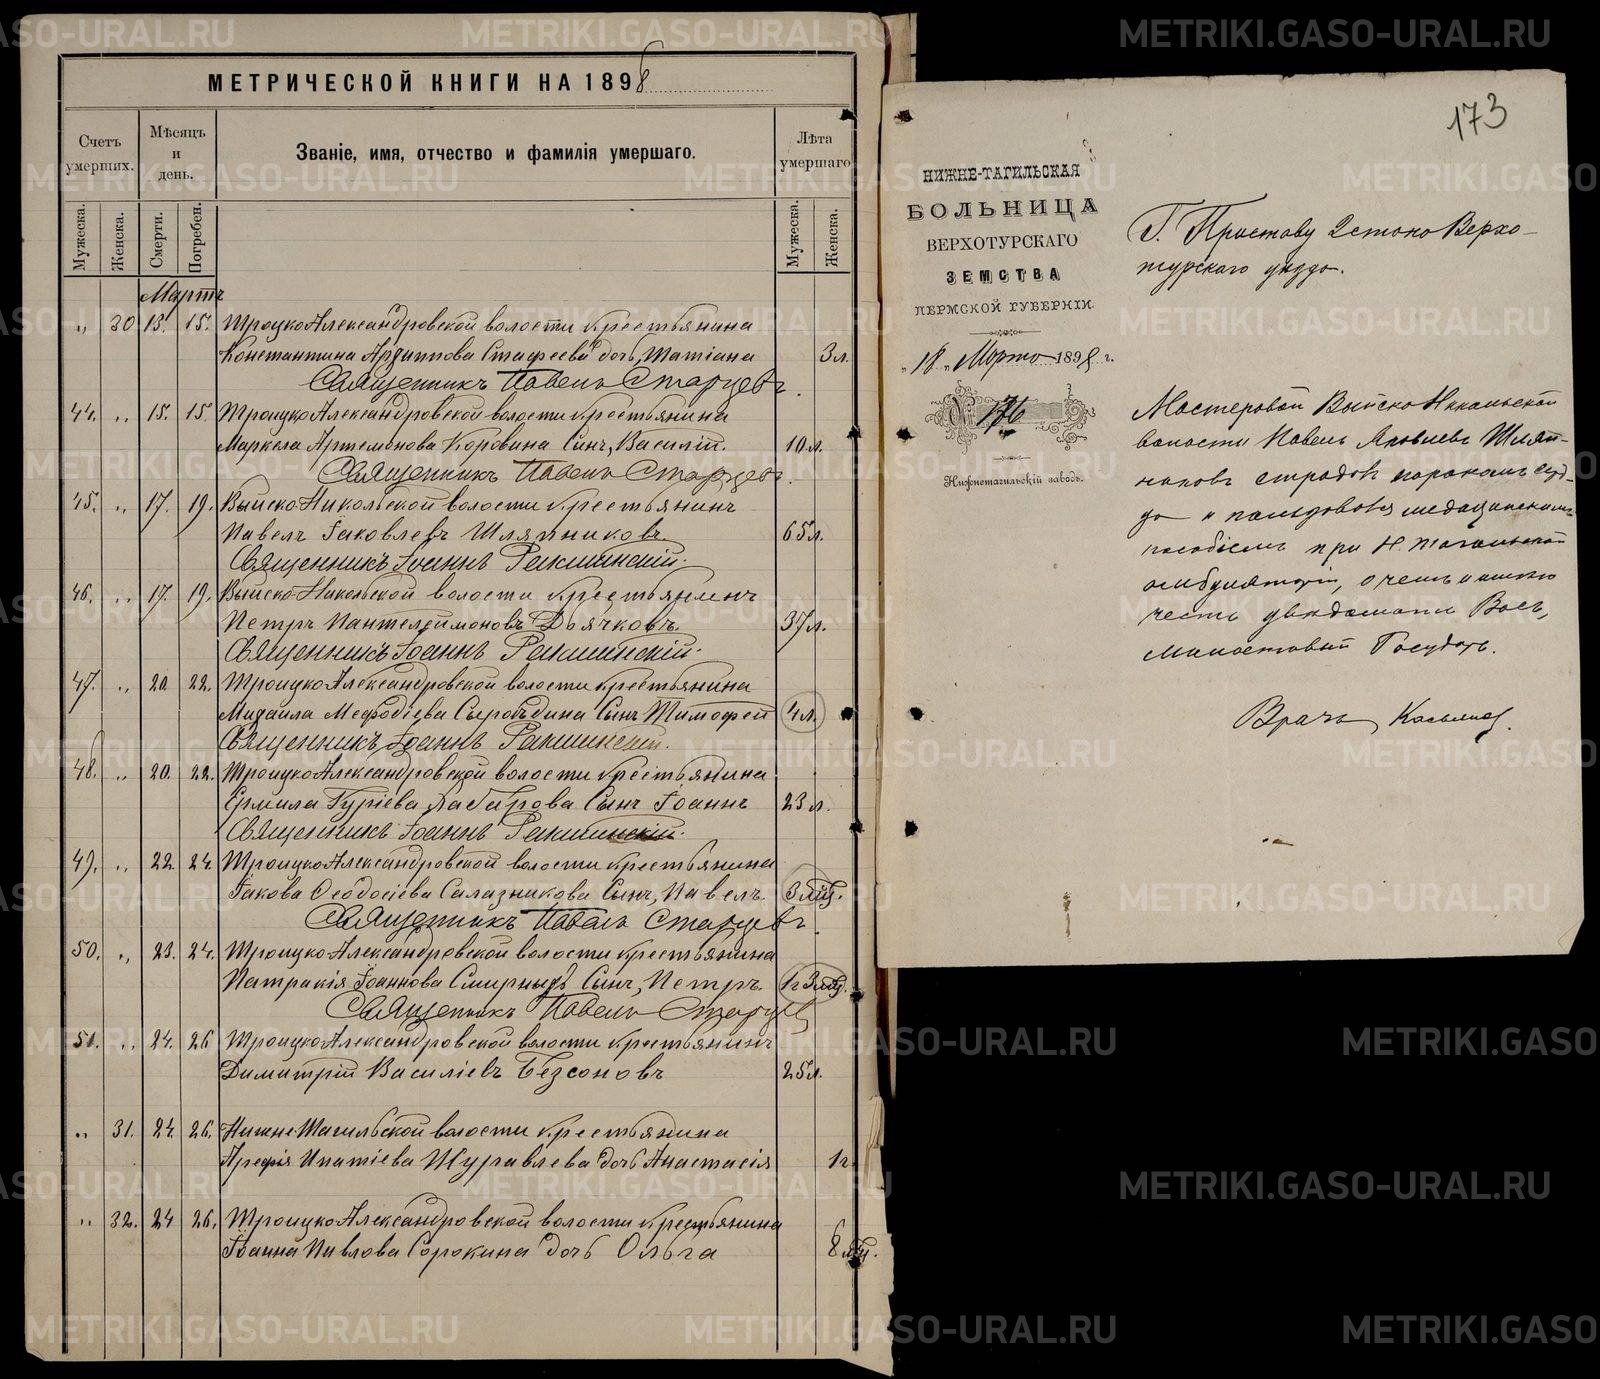 МЕТРИЧЕСКОЙ КНИГИ НА 1898
Счетъ умершихъ.
Мѣсяцъ и день.
Званіе, имя, отчество и фамилія умершаго.
Лѣта умершаго
Мужеска.
Женска.
Смерти.
Погребен.
Мужеска.
Женска.
Мартъ
„ 30 13. 15. ТроицкоАлександровской волости крестьянина
Константина Архиппова Стафеева дочь, Татіана 3 л.
Священникъ Павелъ Старцевъ.
44. „ 15. 15. ТроицкоАлександровской волости крестьянина
Маркела Артемонова Коровина сынъ, Василій. 10 л.
Священникъ Павелъ Старцевъ.
45. „ 17. 19. Выйско-Никольской волости крестьянинъ
Павелъ Іаковлевъ Шляпниковъ. 65 л.
Священникъ Іоаннъ
46. „ 17. 19. Выйско-Никольской волости крестьянинъ
Петръ Пантелеимоновъ Доячковъ. 37 л.
Священникъ Іоаннъ
47. „ 20. 22. ТроицкоАлександровской волости крестьянина
Михаила Мефодіева Сыроѣдина сынъ Тимофей 4 л.
Священникъ Іоаннъ
48. „ 20. 22. ТроицкоАлександровской волости крестьянина
Ермила Гуріева сынъ Іоаннъ 23 л.
Священникъ Іоаннъ
49. „ 22. 24. ТроицкоАлександровской волости крестьянина
Іакова Ѳеодосіева Салазникова сынъ, Павелъ. 3 мѣц.
Священникъ Павелъ Старцевъ.
50. „ 23. 24. ТроицкоАлександровской волости крестьянина
Патракія Іоаннова Смирныхъ сынъ, Петръ. 1 г 3 мѣц.
Священникъ Павелъ Старцевъ
51. „ 24. 26 ТроицкоАлександровской волости крестьянинъ
Димитрій Василіевъ Безсоновъ 25 л.
„ 31. 24. 26. Нижне-Тагильской волости крестьянина
Арефія Ипатіева Журавлева дочь Анастасія 1 г.
„ 32. 24 26. ТроицкоАлександровской волости крестьянина
Іоанна Павлова Сорокина дочь Ольга 8 мѣц.
173
НИЖНЕ-ТАГИЛЬСКАЯ
БОЛЬНИЦА
ВЕРХОТУРСКАГО
ЗЕМСТВА
ПЕРМСКОЙ ГУБЕРНІИ.
„18„ Марта 1898 г.
№ 176
Нижнетагильскій заводъ.
Г. Приставу 2 стана Верхо-
турскаго уѣзда.
Мастеровой Выйско Никольской
волости Павелъ Яковлевъ Шляп-
никовъ страдалъ порокомъ серд-
ца и пользовался медицинскимъ
пособіемъ при Н. Тагильской
амбулаторіи, о чемъ имѣю
честь увѣдомить Васъ,
Милостивый Государь.
Врачъ
METRIKI.GASO-URAL.RU